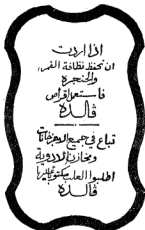 اذا اردت
ان تحفظ نظافة الفم
والحنجرة
فاستعمل اقراص
ڤالده
تباع في جميع
ومخازن الادوية
اطلبوا العلب مكتوب عليها
ڤالده